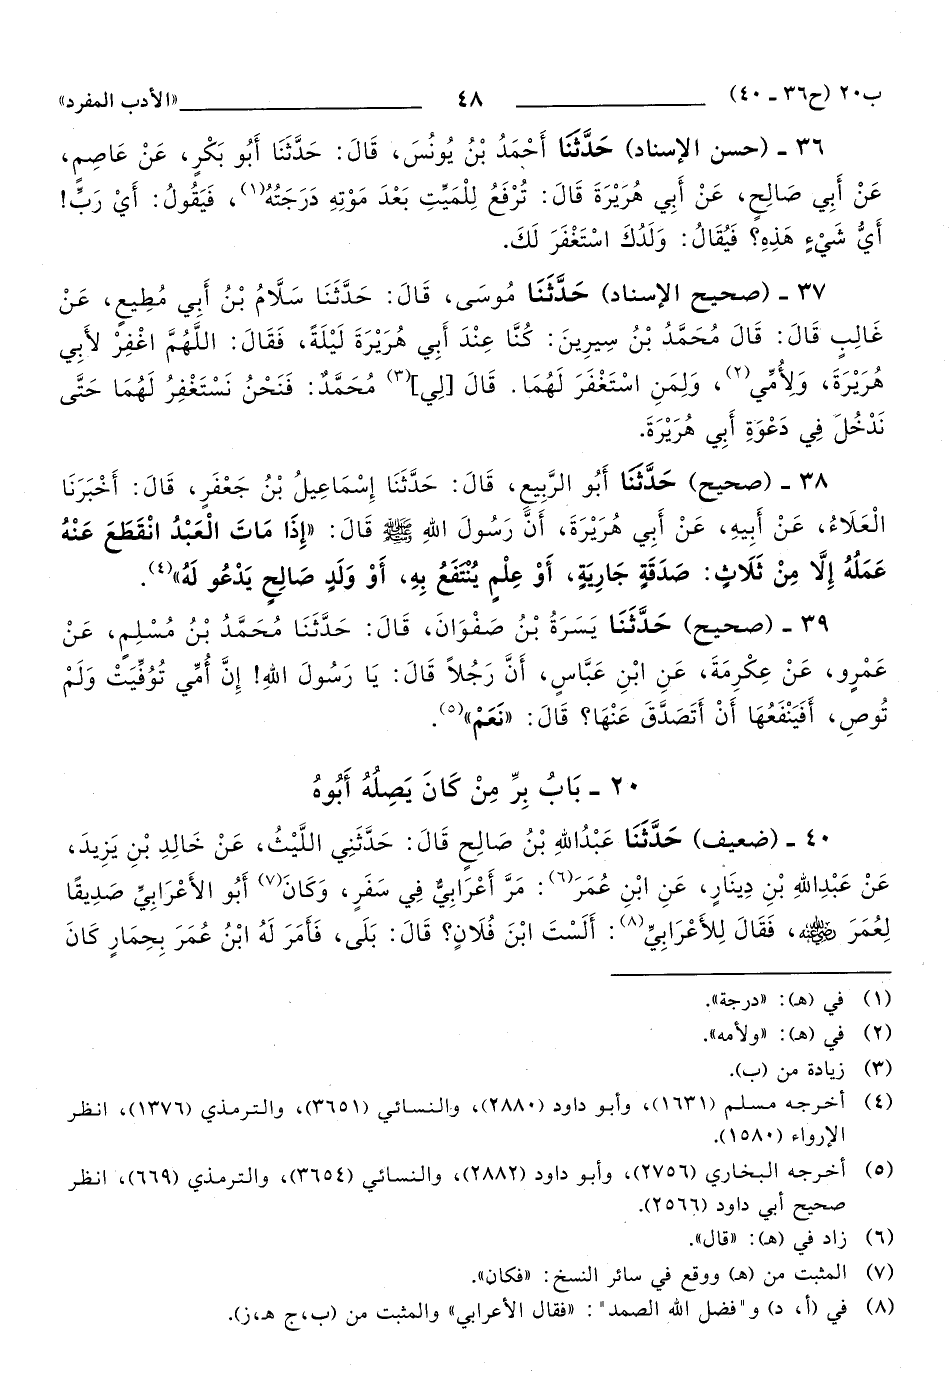 ب٢٠ (ح٣٦ ـ ٤٠) ٤٨ «الأدب المفرد»
٣٦ ـ (حسن الإسناد) حَدَّثَنَا أَحْمَدُ بْنُ يُونُسَ، قَالَ: حَدَّثَنَا أَبُو بَكْرٍ، عَنْ عَاصِمٍ،
عَنْ أَبِي صَالِحٍ، عَنْ أَبِي هُرَيْرَةَ قَالَ: تُرْفَعُ لِلْمَيِّتِ بَعْدَ مَوْتِهِ دَرَجَتُهُ(١)، فَيَقُولُ: أَيْ رَبِّ!
أَيُّ شَيْءٍ هَذِهِ؟ فَيُقَالُ: وَلَدُكَ اسْتَغْفَرَ لَكَ.
٣٧ ـ (صحيح الإسناد) حَدَّثَنَا مُوسَى، قَالَ: حَدَّثَنَا سَلَّامُ بْنُ أَبِي مُطِيعٍ، عَنْ
غَالِبٍ قَالَ: قَالَ مُحَمَّدُ بْنُ سِيرِينَ: كُنَّا عِنْدَ أَبِي هُرَيْرَةَ لَيْلَةً، فَقَالَ: اللَّهُمَّ اغْفِرْ لأَبِي
هُرَيْرَةَ، وَلِأُمِّي(٢)، وَلِمَنِ اسْتَغْفَرَ لَهُمَا. قَالَ [لِي](٣) مُحَمَّدٌ: فَنَحْنُ نَسْتَغْفِرُ لَهُمَا حَتَّى
نَدْخُلَ فِي دَعْوَةِ أَبِي هُرَيْرَةَ.
٣٨ ـ (صحيح) حَدَّثَنَا أَبُو الرَّبِيعِ، قَالَ: حَدَّثَنَا إِسْمَاعِيلُ بْنُ جَعْفَرٍ، قَالَ: أَخْبَرَنَا
الْعَلَاءُ، عَنْ أَبِيهِ، عَنْ أَبِي هُرَيْرَةَ، أَنَّ رَسُولَ اللهِ ﷺ قَالَ: «إِذَا مَاتَ الْعَبْدُ انْقَطَعَ عَنْهُ
عَمَلُهُ إِلَّا مِنْ ثَلَاثٍ: صَدَقَةٍ جَارِيَةٍ، أَوْ عِلْمٍ يُنْتَفَعُ بِهِ، أَوْ وَلَدٍ صَالِحٍ يَدْعُو لَهُ»(٤).
٣٩ ـ (صحيح) حَدَّثَنَا يَسَرَةُ بْنُ صَفْوَانَ، قَالَ: حَدَّثَنَا مُحَمَّدُ بْنُ مُسْلِمٍ، عَنْ
عَمْرٍو، عَنْ عِكْرِمَةَ، عَنِ ابْنِ عَبَّاسٍ، أَنَّ رَجُلاً قَالَ: يَا رَسُولَ اللهِ! إِنَّ أُمِّي تُوُفِّيَتْ وَلَمْ
تُوصِ، أَفَيَنْفَعُهَا أَنْ أَتَصَدَّقَ عَنْهَا؟ قَالَ: «نَعَمْ»(٥).
٢٠ ـ بَابُ بِرِّ مِنْ كَانَ يَصِلُهُ أَبُوهُ
٤٠ ـ (ضعيف) حَدَّثَنَا عَبْدُاللهِ بْنُ صَالِحٍ قَالَ: حَدَّثَنِي اللَّيْثُ، عَنْ خَالِدِ بْنِ يَزِيدَ،
عَنْ عَبْدِاللهِ بْنِ دِينَارٍ، عَنِ ابْنِ عُمَرَ(٦): مَرَّ أَعْرَابِيٌّ فِي سَفَرٍ، وَكَانَ(٧) أَبُو الأَعْرَابِيِّ صَدِيقًا
لِعُمَرَ رضي الله عنه، فَقَالَ لِلأَعْرَابِيِّ(٨): أَلَسْتَ ابْنَ فُلَانٍ؟ قَالَ: بَلَى، فَأَمَرَ لَهُ ابْنُ عُمَرَ بِحِمَارٍ كَانَ
(١) في (هـ): «درجة».
(٢) في (هـ): «ولأمه».
(٣) زيادة من (ب).
(٤) أخرجه مسلم (١٦٣١)، وأبو داود (٢٨٨٠)، والنسائي (٣٦٥١)، والترمذي (١٣٧٦)، انظر
الإرواء (١٥٨٠).
(٥) أخرجه البخاري (٢٧٥٦)، وأبو داود (٢٨٨٢)، والنسائي (٣٦٥٤)، والترمذي (٦٦٩)، انظر
صحيح أبي داود (٢٥٦٦).
(٦) زاد في (هـ): «قال».
(٧) المثبت من (هـ) ووقع في سائر النسخ: «فكان».
(٨) في (أ، د) و"فضل الله الصمد": «فقال الأعرابي» والمثبت من (ب،ج هـ،ز).